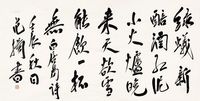 綠蟻新
醅酒紅泥
小火爐晚
來天欲雪
能飲一杯
無白居易詩
壬辰秋日
書